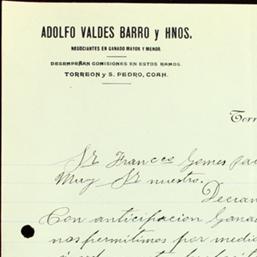 ADOLFO VALDES BARRO y HNOS.
NEGOCIANTES EN GANADO MAYOR Y MENOR.
DESEMPEÑAN COMISIONES EN ESTOS RAMOS.
TORREON y S. PEDRO, COAH.
Torr
Sr Francco Gomes
Muy Sr nuestro.
Deciam
Con anticipacion Gana
nos permitimos por medio